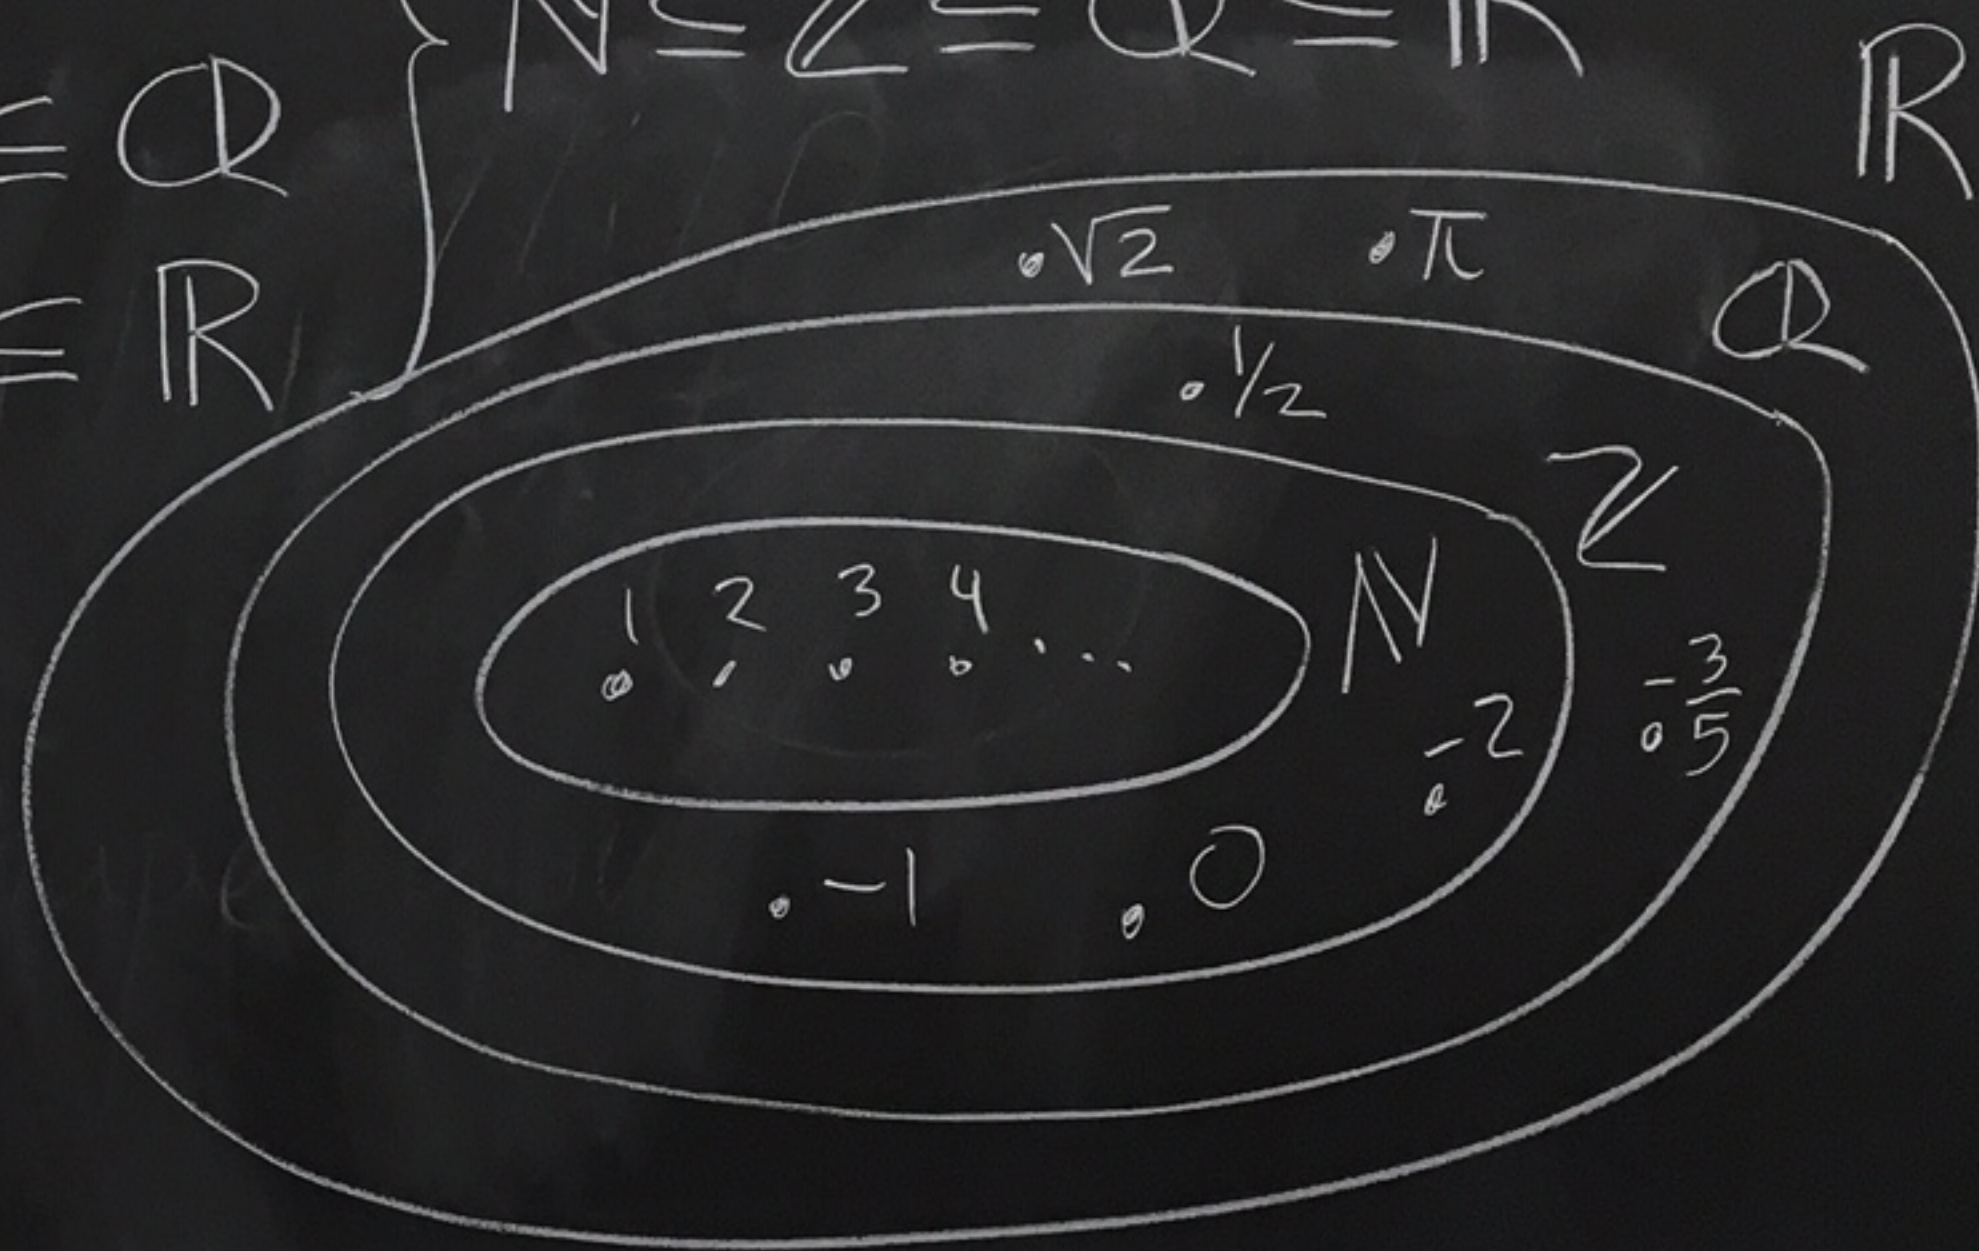 ℕ ⊆ ℤ ⊆ ℚ ⊆ ℝ
⊆ ℚ
⊆ ℝ
ℝ
√2 π
ℚ
1/2
ℤ
1 2 3 4 ...
ℕ
-3/5
-2
-1 0